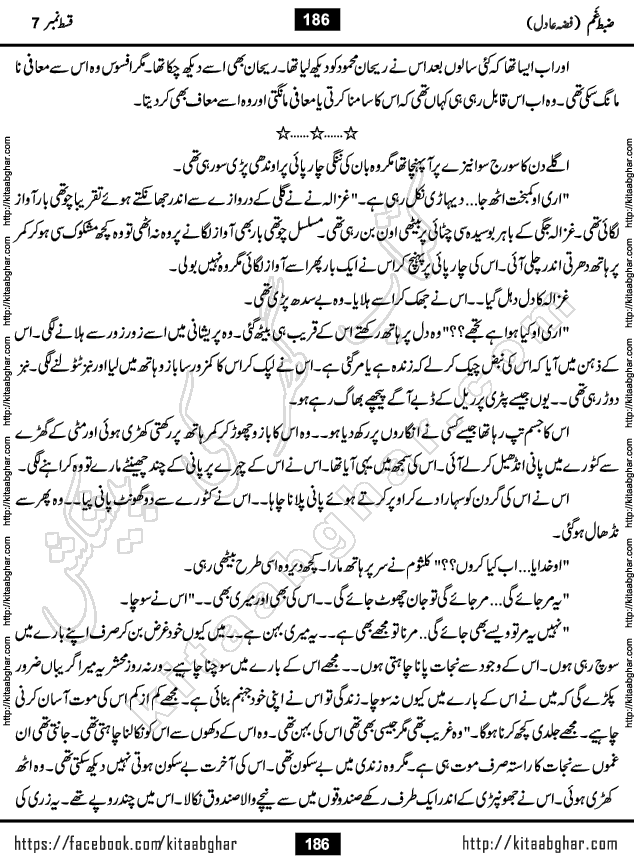 قسط نمبر 7
186
ضبطِ غم (فضہ عادل)
اور اب ایسا تھا کہ کئی سالوں بعد اس نے ریحان محمود کو دیکھ لیا تھا۔ ریحان بھی اسے دیکھ چکا تھا۔ مگر افسوس وہ اس سے معافی نا
مانگ سکی تھی۔ وہ اب اس قابل رہی ہی کہاں تھی کہ اس کا سامنا کرتی یا معافی مانگتی اور وہ اسے معاف بھی کر دیتا۔
☆......☆......☆
اگلے دن کا سورج سوا نیزے پر آ پہنچا تھا مگر وہ بان کی ننگی چارپائی پر اوندھی پڑی سو رہی تھی۔
"اری او کمبخت اٹھ جا... دیہاڑی نکل رہی ہے۔" غزالہ نے نے گلی کے دروازے سے اندر جھانکتے ہوئے تقریبا چوتھی بار آواز
لگائی تھی۔ غزالہ جھگی کے باہر بوسیدہ سی چٹائی پر بیٹھی اون بن رہی تھی۔ مسلسل چوتھی بار بھی آواز لگانے پر وہ نہ اٹھی تو وہ کچھ مشکوک سی ہو کر کمر
پر ہاتھ دھرتی اندر چلی آئی۔ اس کی چارپائی پر پہنچ کر اس نے ایک بار پھر اسے آواز لگائی مگر وہ نہیں بولی۔
غزالہ کا دل دہل گیا۔۔ اس نے جھک کر اسے ہلایا۔ وہ بے سدھ پڑی تھی۔
"اری او کیا ہوا ہے تجھے؟؟" وہ دل پر ہاتھ رکھتے اس کے قریب ہی بیٹھ گئی۔ وہ پریشانی میں اسے زور زور سے ہلانے لگی۔ اس
کے ذہن میں آیا کہ اس کی نبض چیک کر لے کہ زندہ ہے یا مر گئی ہے۔ اس نے لپک کر اس کا کمزور سا بازو ہاتھ میں لیا اور نبض ٹٹولنے لگی۔ نبض
دوڑ رہی تھی۔۔ یوں جیسے پٹری پر ریل کے ڈبے آگے پیچھے بھاگ رہے ہو۔
اس کا جسم تپ رہا تھا جیسے کسی نے انگاروں پر رکھ دیا ہو۔۔ وہ اس کا بازو چھوڑ کر کمر ہاتھ پر رکھتی کھڑی ہوئی اور مٹی کے گھڑے
سے کٹورے میں پانی انڈھیل کر لے آئی۔ اس کی سمجھ میں یہی آیا تھا۔ اس نے اس کے چہرے پر پانی کے چند چھینٹے مارے تو وہ کراہنے لگی۔
اس نے اس کی گردن کو سہارا دے کر اوپر کرتے ہوئے پانی پلانا چاہا۔۔ اس نے کٹورے سے دو گھونٹ پانی پیا۔۔ وہ پھر سے
نڈھال ہو گئی۔
"او خدایا... اب کیا کروں؟؟" کلثوم نے سر پر ہاتھ مارا۔ کچھ دیر وہ اسی طرح بیٹھی رہی۔
"یہ مر جائے گی... مر جائے گی تو جان چھوٹ جائے گی۔۔ اس کی بھی اور میری بھی۔۔" اس نے سوچا۔
"نہیں یہ مر تو ویسے بھی جائے گی.. مرنا تو مجھے بھی ہے۔۔ یہ میری بہن ہے... میں کیوں خود غرض بن کر صرف اپنے بارے میں
سوچ رہی ہوں۔ اس کے وجود سے نجات پانا چاہتی ہوں۔۔ مجھے اس کے بارے میں سوچنا چاہیے۔ ورنہ روز محشر یہ میرا گریباں ضرور
پکڑے گی کہ میں نے اس کے بارے میں کیوں نہ سوچا۔ زندگی تو اس نے اپنی خود جہنم بنائی ہے۔ مجھے کم از کم اس کی موت آسان کرنی
چاہیے۔ مجھے جلدی کچھ کرنا ہوگا۔" وہ غریب تھی مگر جیسی بھی تھی اس کی بہن تھی۔ وہ اس کے دکھوں سے اس کو نکالنا چاہتی تھی۔ جانتی تھی ان
غموں سے نجات کا راستہ صرف موت ہی ہے۔ مگر وہ زندی میں بے سکون تھی۔ اس کی آخرت بے سکون ہوتی نہیں دیکھ سکتی تھی۔ وہ اٹھ
کھڑی ہوئی۔ اس نے جھونپڑی کے اندر ایک طرف رکھے صندوقوں میں سے نیچے والا صندوق نکالا۔ اس میں چند روپے تھے۔ یہ زری کی
کتاب گھر کی پیشکش
kitaabghar.com
http://kitaabghar.com http://kitaabghar.com http://kitaabghar.com http://kitaabghar.com http://kitaabghar.com http://kitaabghar.com
http://kitaabghar.com http://kitaabghar.com http://kitaabghar.com http://kitaabghar.com http://kitaabghar.com http://kitaabghar.com
https://facebook.com/kitaabghar
186
http://kitaabghar.com